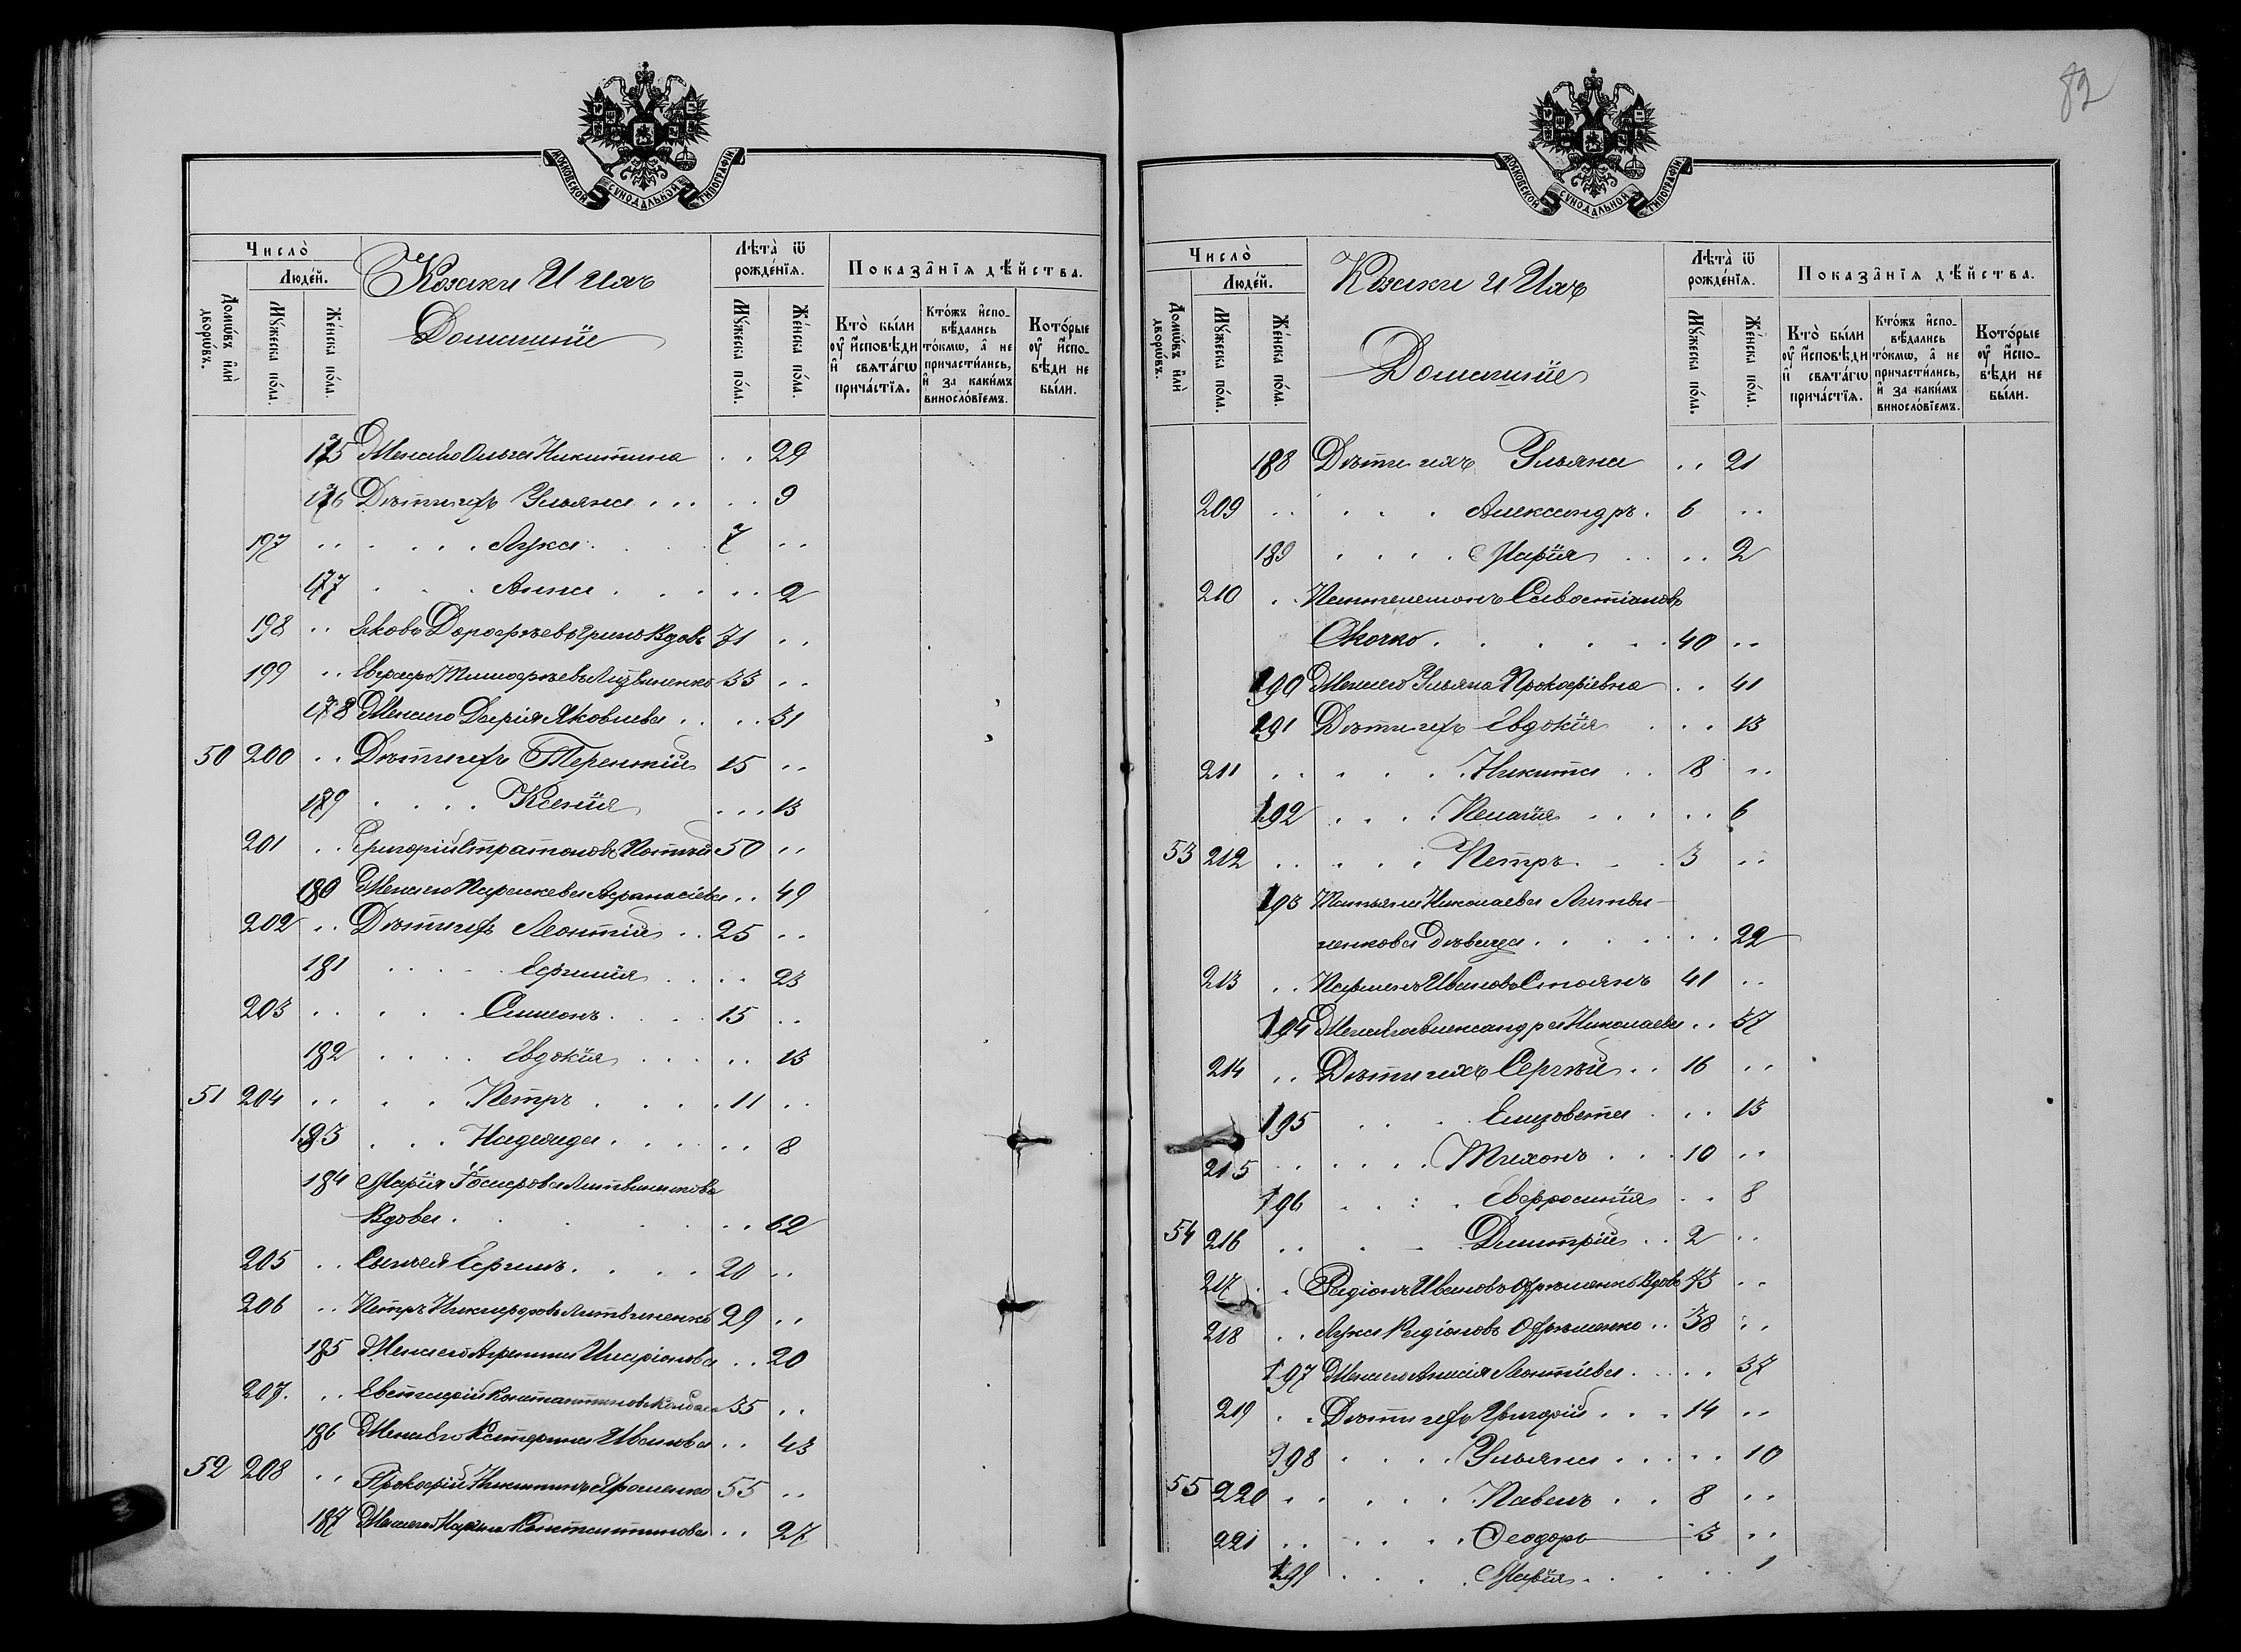 МОСКОВСКОЙ СѴНОДАЛЬНОЙ ТИПОГРАФІИ
Число̀
Люде́й.
Домѡ́въ и҆лѝ дворѡ́въ.
Мꙋ́жеска по́ла.
Же́нска по́ла.
Козаки И ихъ
Домашніе
Лѣта̀ ѿ рожде́нїѧ.
Мꙋ́жеска по́ла.
Же́нска по́ла.
Показа̑нїѧ дѣ́йства.
Кто̀ бы́ли оу҆ и҆сповѣ́ди и҆ свѧта́гѡ прича́стїѧ.
Кто́жъ и҆сповѣ́дались то́кмѡ, а҆ не причасти́лись, и҆ за каки́мъ виносло́вїемъ.
Кото́рые оу҆ и҆сповѣ́ди не бы́ли.
175 Жена его Ольга Никитина . . 29
176 Дѣти ихъ Ульяна . . . . . 9
197 . . . . . . Лука . . . 7 . .
177 . . . Анна . . . . . 2
198 . . Яковъ Дорофѣевъ Грино Вдовъ 71 . .
199 . . Тимофѣевъ Литвиненко 33 . .
178 Жена его Дарія Яковлева . . . . 31
50 200 . . Дѣти ихъ Терентій 15 . .
179 . . . . Ксенія . . . 13
201 . . Григорій Стратоновъ 50 . .
180 Жена его Параскева Афанасіева . . 49
202 . . Дѣти ихъ Леонтій . . 25 . .
181 . . . . Евфимія . . . . 23
203 . . . . . Симеонъ . . . 15 . .
182 . . . . Евдокія . . . . . 13
51 204 . . . . Петръ . . . . 11 . .
183 . . . Надежда . . . . . . 8
184 Марія Іосифова Литвиненкова
Вдова . . . . . 62
205 . . Сынъ ея Ефимъ . . . . 20 . .
206 . . Петръ Никифоровъ Литвиненко 29 . .
185 Жена его Агрепина Иларіонова . . 20
207 . . Евстафій Константиновъ 35 . .
186 Жена его Катерина Иванова . . 43
52 208 . . Прокофій Никитинъ Ярошенко 55 . .
187 Жена его Марина Константинова . . 27
82
МОСКОВСКОЙ СѴНОДАЛЬНОЙ ТИПОГРАФІИ
Число̀
Люде́й.
Домѡ́въ и҆лѝ дворѡ́въ.
Мꙋ́жеска по́ла.
Же́нска по́ла.
Козаки и Ихъ
Домашніе
Лѣта̀ ѿ рожде́нїѧ.
Мꙋ́жеска по́ла.
Же́нска по́ла.
Показа̑нїѧ дѣ́йства.
Кто̀ бы́ли оу҆ и҆сповѣ́ди и҆ свѧта́гѡ прича́стїѧ.
Кто́жъ и҆сповѣ́дались то́кмѡ, а҆ не причасти́лись, и҆ за каки́мъ виносло́вїемъ.
Кото́рые оу҆ и҆сповѣ́ди не бы́ли.
188 Дѣти ихъ Ульяна . . 21
209 . . . . . Александръ . 6 . .
189 . . . . Марія . . . . 2
210 . . Пантелемонъ Савостіановъ
Скочко . . . . . . 40 . .
190 Жена его Ульяна Прокофіевна . . 41
191 Дѣти ихъ Евдокія . . . 13
211 . . . . . . Никита . . 8 . .
192 . . . . Пелагія . . . . . 6
53 212 . . . . . Петръ . . . 3 . .
193 Татьяна Николаева Литви-
ненкова Дѣвица . . . . . . 22
213 . . Парменъ Ивановъ Стоянъ 41 . .
194 Жена его Александра Николаева . . 37
214 . . Дѣти ихъ Сергѣй . . 16 . .
195 . . . Елизовета . . . 13
215 . . . . . . Тихонъ . . . 10 . .
196 . . . . Евфросинія . . 8
54 216 . . . . Димитрій . . 2 . .
217 . . Радіонъ Ивановъ Офѣменко Вдовъ 73 . .
218 . . Лука Радіоновъ Офѣменко . . 38 . .
197 Жена его Анисія Леонтіева . . . . 37
219 . . Дѣти ихъ Григорій . . . 14 . .
198 . . . . Ульяна . . . . . 10
55 220 . . . . . Павелъ . . 8 . .
221 . . . . . . Ѳеодоръ 3 . .
199 . . . . Марія . . . . 1